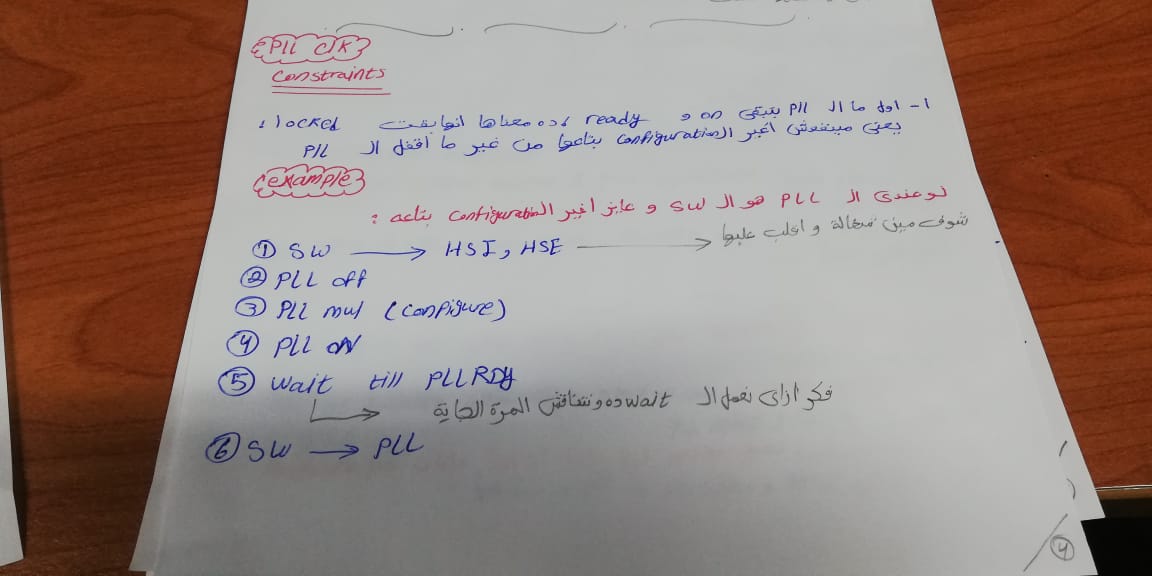 PLL clk
Constraints
1- اول ما ال PLL بتبقى on و ready ده معناها انها بقت locked :
يعنى مينفعش اغير ال configuration بتاعها من غير ما أقفل ال PLL
example
لو عندى ال PLL هو ال SW و عايز اغير ال configuration بتاعه :
① SW → HSI, HSE → شوف مين شغالة و اقلب عليها
② PLL off
③ PLL mul (configure)
④ PLL on
⑤ wait till PLLRDY
↳ فكر ازاى نعمل ال wait ده ونتناقش المرة الجاية
⑥ SW → PLL
④